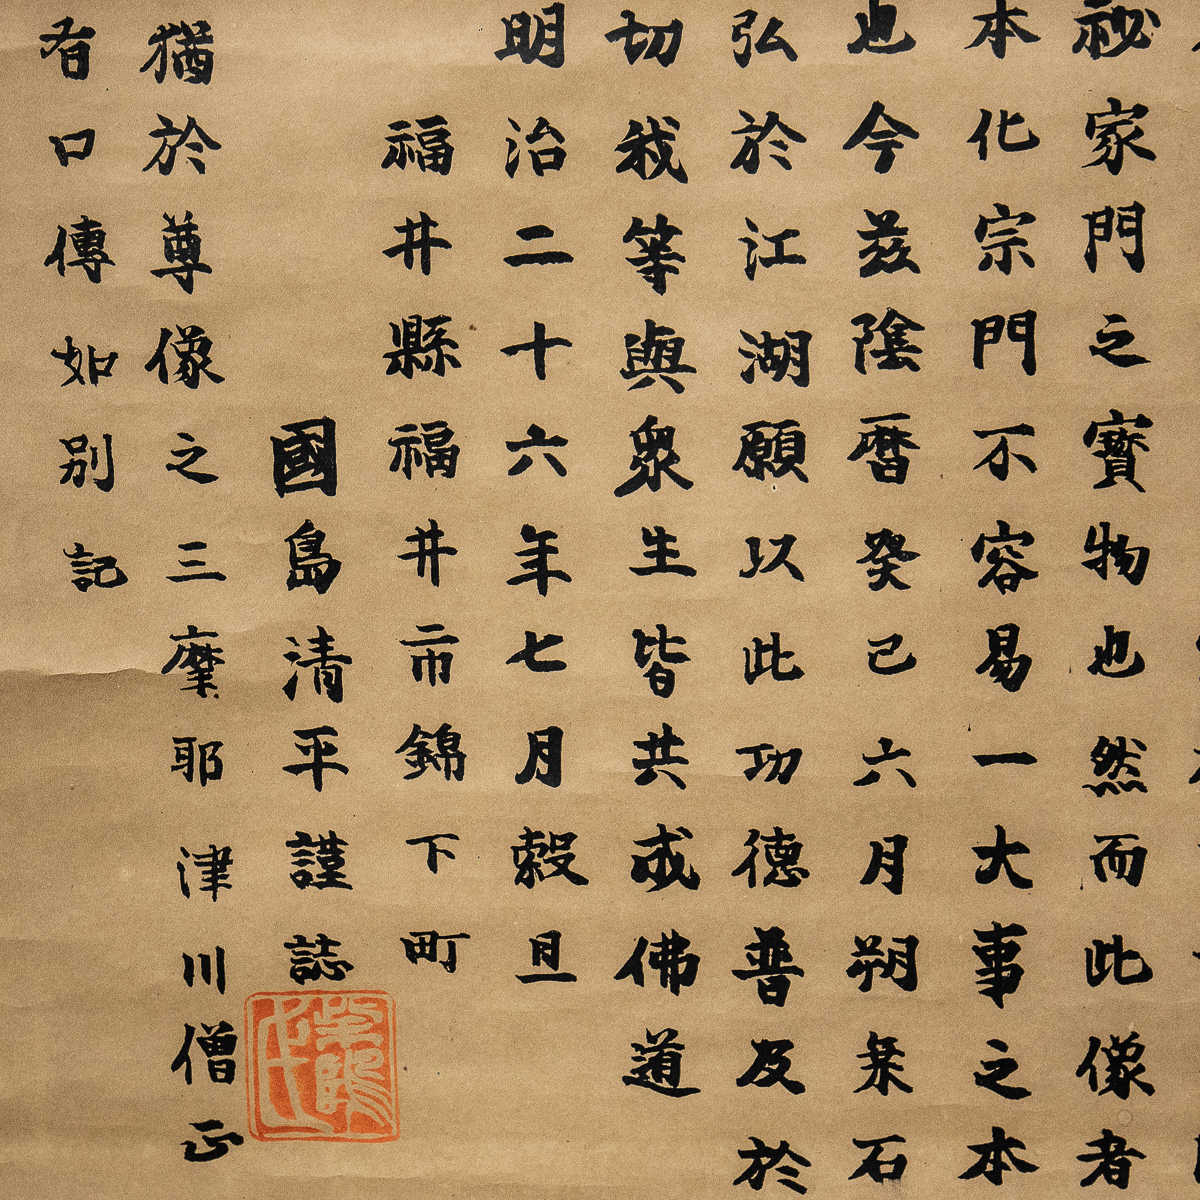 祕家門之寶物也然而此像者
本化宗門不容易一大事之本
也今茲陰曆癸巳六月朔発石
弘於江湖願以此功德普及於
切我等與眾生皆共成佛道
明治二十六年七月穀旦
福井縣福井市錦下町
國島清平謹誌
猶於尊像之三摩耶津川僧正
有口傳如別記